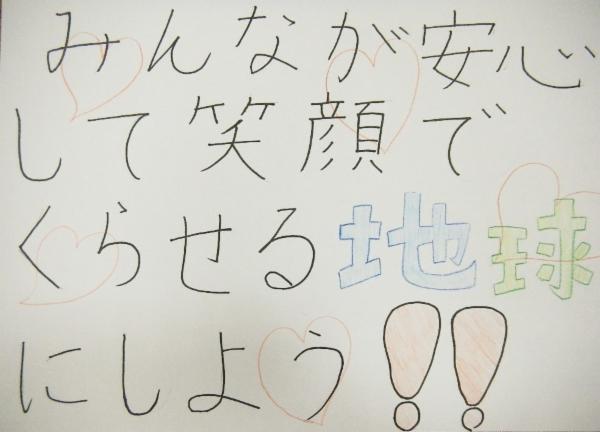 みんなが安心
して笑顔で
くらせる地球
にしよう!!